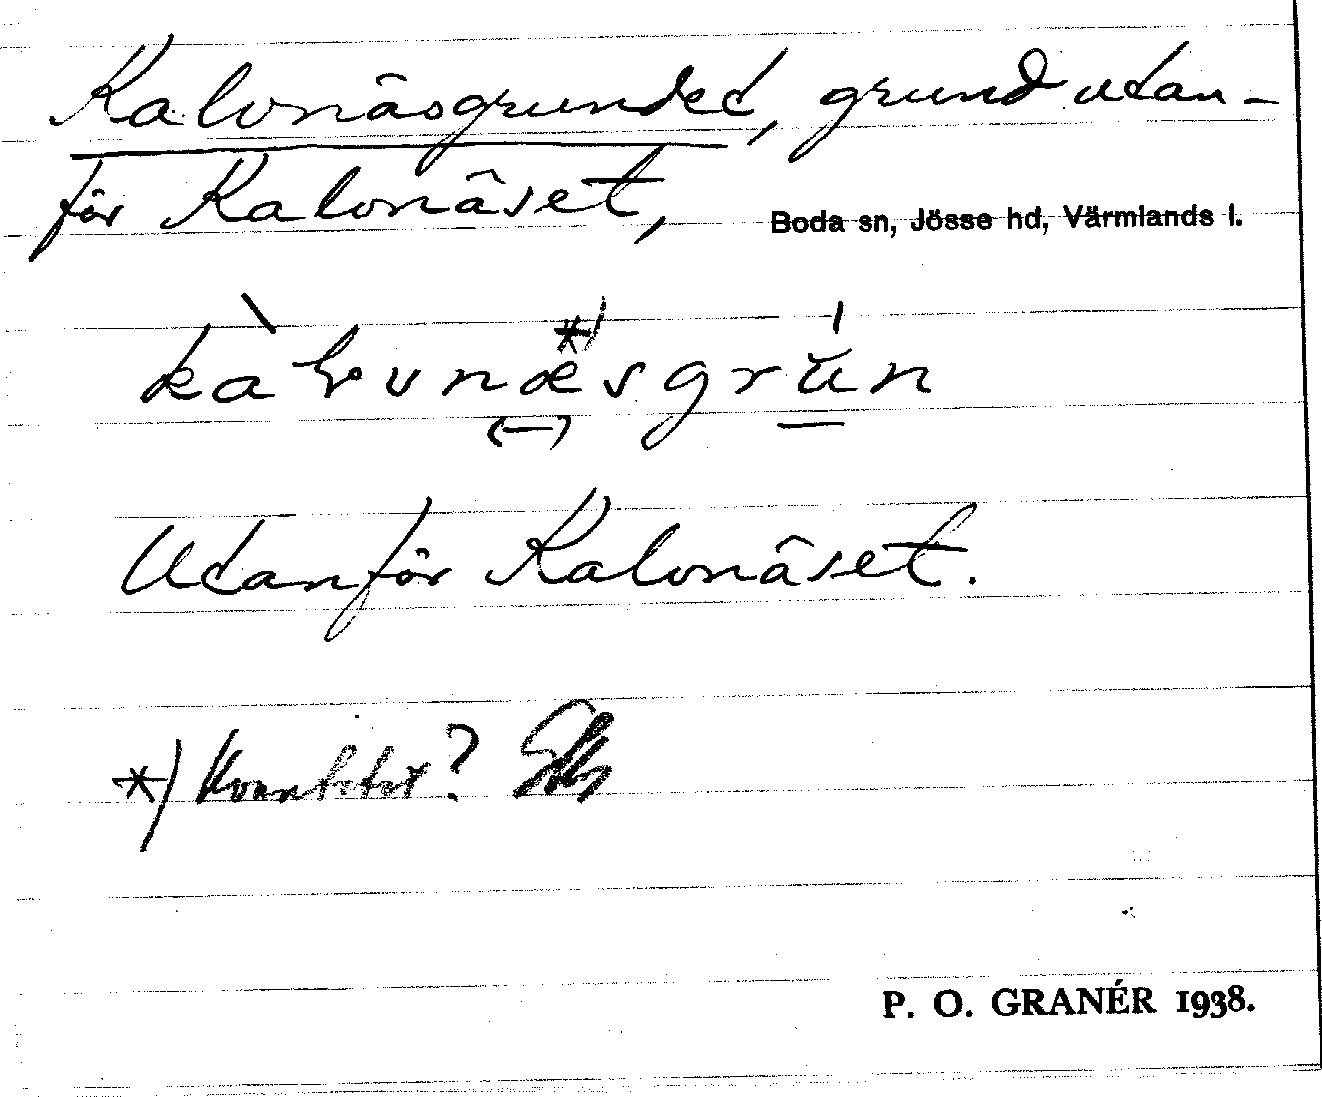 Kalvnäsgrundet, grund utan-
för Kalvnäset, Boda sn, Jösse hd, Värmlands l.
Utanför Kalvnäset.
*) Kvantitet?
P. O. GRANÉR 1938.